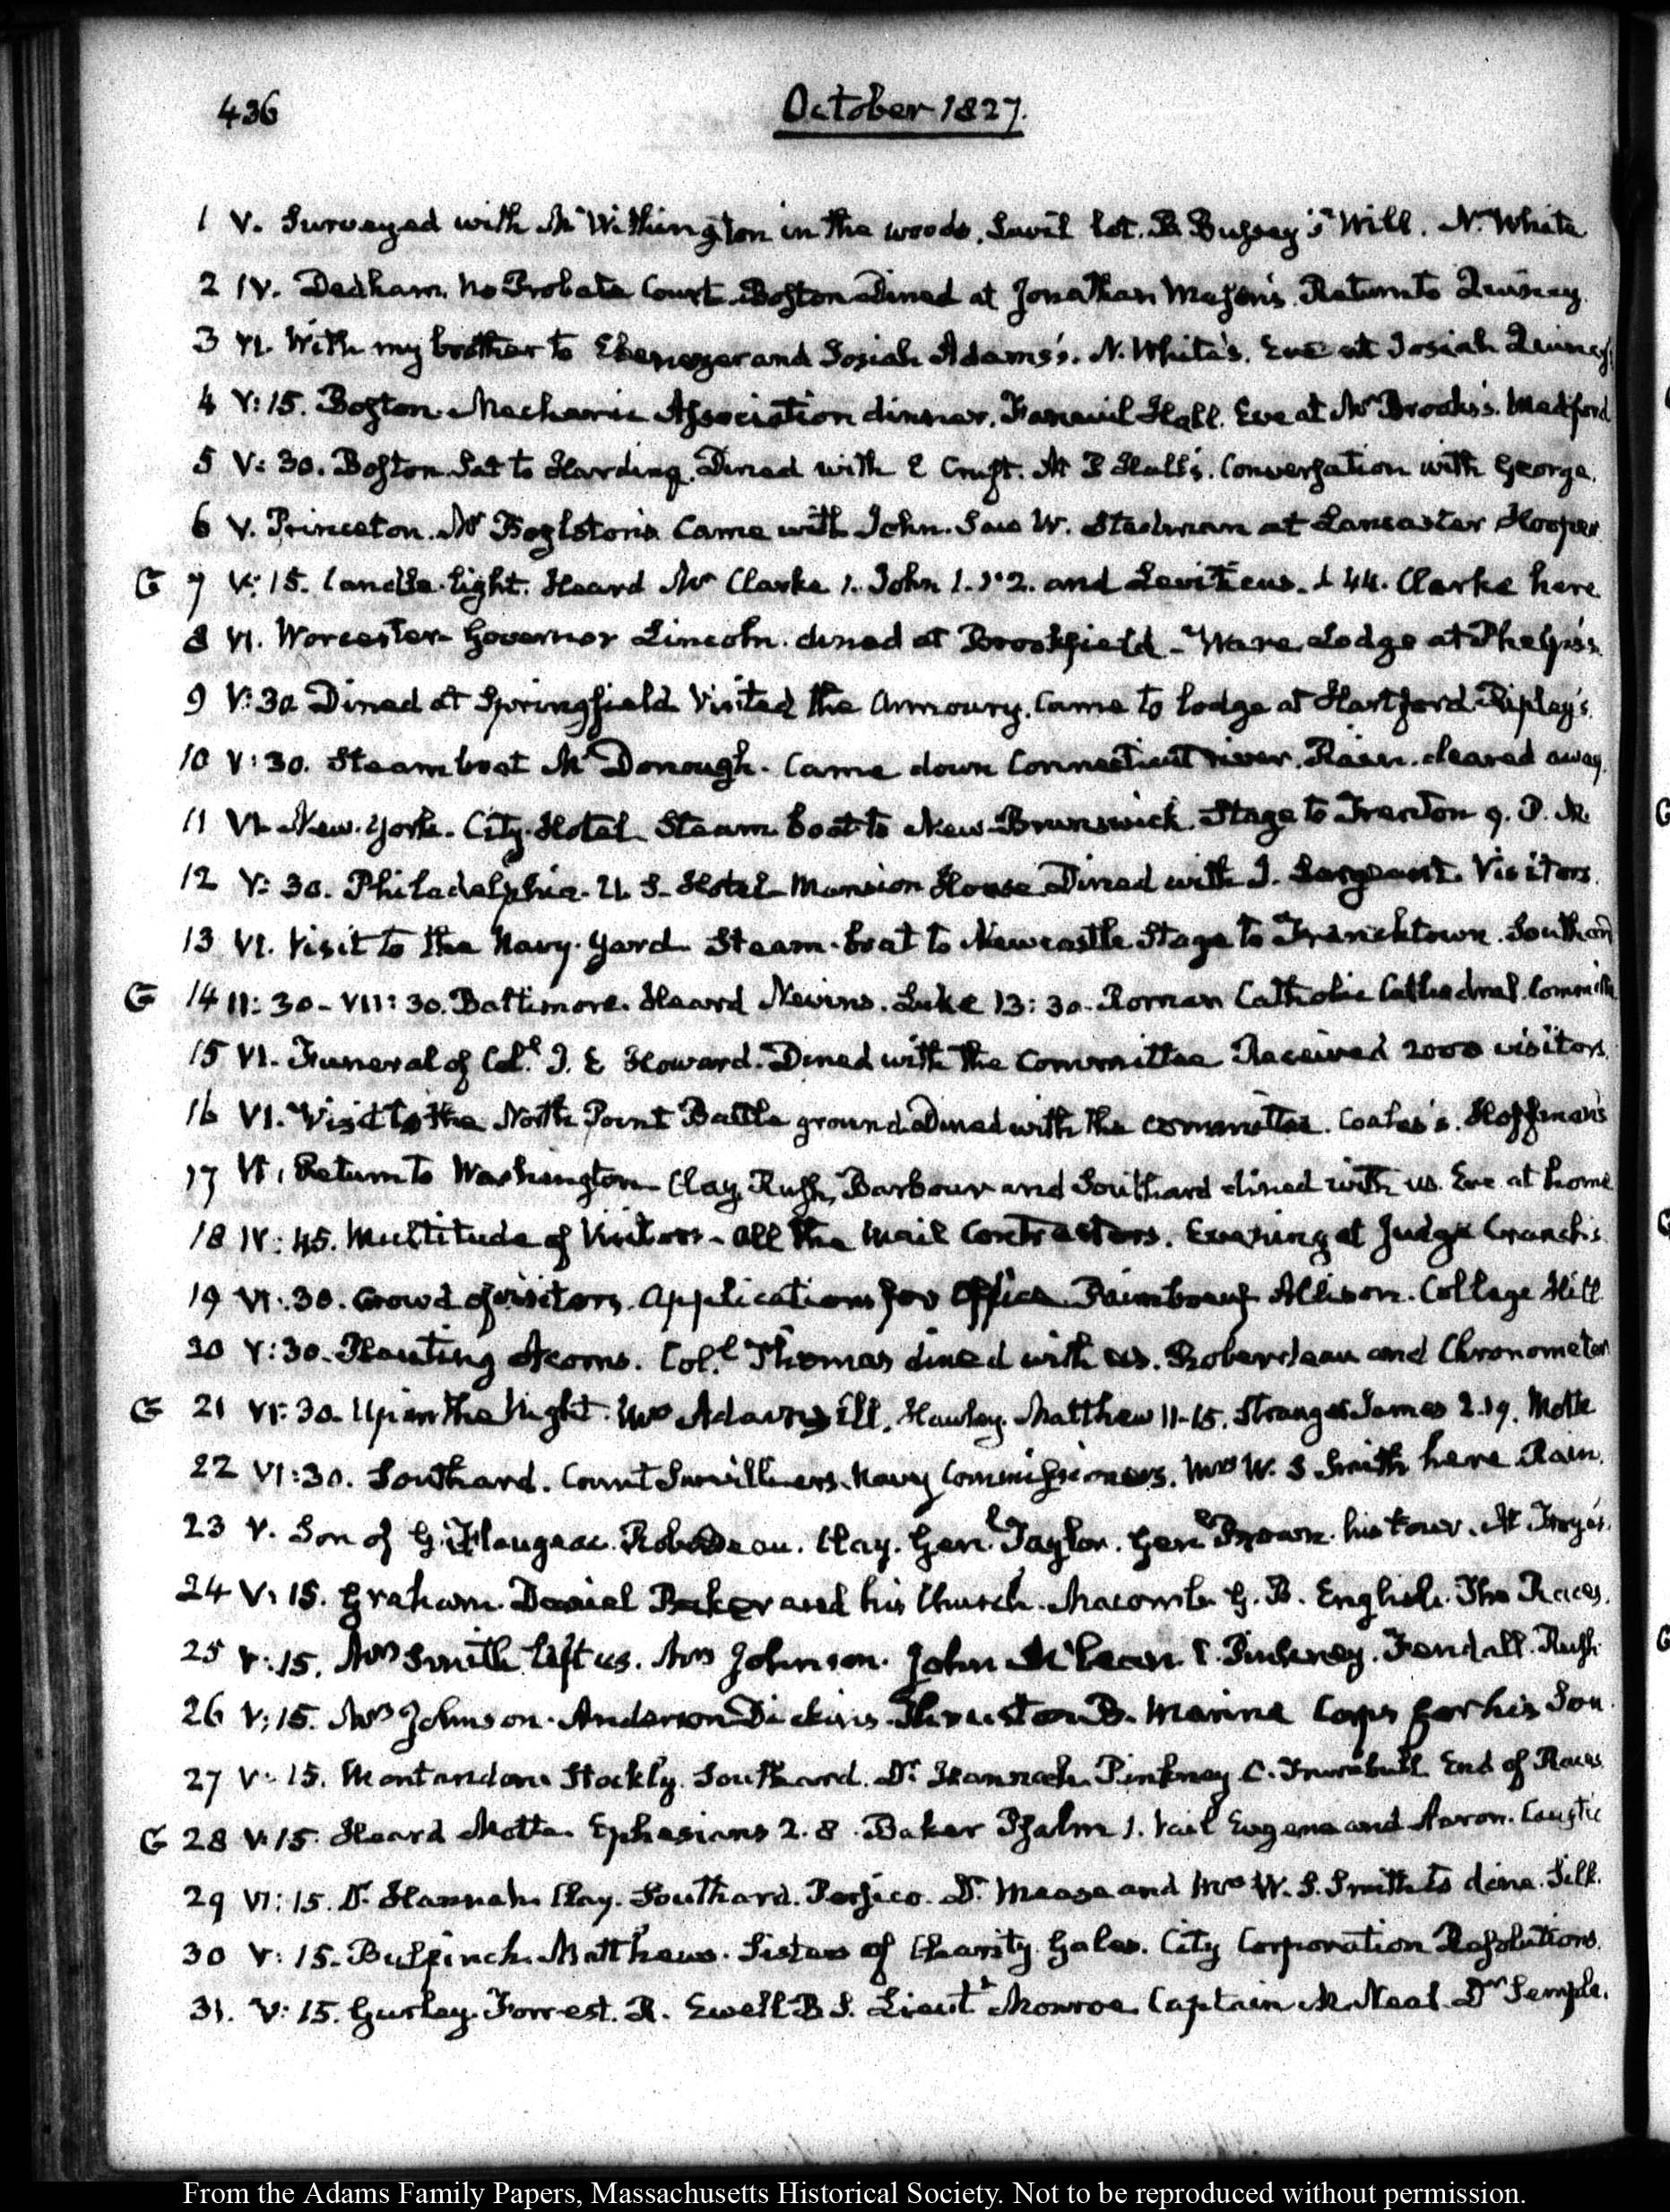 436
October 1827.
1 V. Surveyed with Mr Withington in the woods. Savil lot. B. Bussey's Will. N. White
2 IV. Dedham. No Probate Court. Boston Dined at Jonathan Mason's. Return to Quincy
3 VI. With my brother to Ebenezer and Josiah Adams's. N. White's. Eve at Josiah Quincy's
4 V:15. Boston. Mechanic Association dinner. Faneuil Hall. Eve at Mr Brooks's. Medford
5 V:30. Boston. Sat to Harding. Dined with E Cruft. At J Hall's. Conversation with George.
6 V. Princeton. Mr Boylston's. Came with John. Saw W. Stedman at Lancaster Hooper
G 7 V:15. Candle-light. Heard Mr Clarke 1. John 1. 1.2. and Leviticus. 44. Clarke here
8 VI. Worcester Governor Lincoln. dined at Brookfield - Ware Lodge at Phelps's
9 V:30 Dined at Springfield Visited the Armoury. Came to lodge at Hartford Ripley's.
10 V:30. Steam boat McDonough. Came down Connecticut river. Rain. cleared away.
11 VI. New-York. City Hotel Steam boat to New-Brunswick. Stage to Trenton 9. P. M.
12 V:30. Philadelphia. U. S. Hotel - Mansion House Dined with J. Sergeant. Visitors.
13 VI. Visit to the Navy-Yard Steam-boat to Newcastle Stage to Frenchtown. Southard
G 14 II:30-VII:30. Baltimore. Heard Nevins. Luke 13:30. Roman Catholic Cathedral. Committee
15 VI. Funeral of Coll. J. E Howard. Dined with the Committee Received 2000 visitors.
16 VI. Visit to the North Point Battle ground Dined with the committee. Coates's. Hoffman's
17 VI. Return to Washington Clay, Rush, Barbour and Southard dined with us. Eve at home
18 IV:45. Multitude of Visitors - all the Mail Contractors. Evening at Judge Cranch's
19 VI:30. Crowd of visitors. Applications for Office Allison. College Hill
20 V:30. Planting Acorns. Coll. Thomas dined with us. Roberdeau and Chronometer
G 21 VI:30. Up in the Night. Mrs Adams ill. Hawley. Matthew 11-15. Strange James 2.19. Motte
22 VI:30. Southard. Count Survilliers. Navy Commissioners. Mrs W. S Smith here Rain.
23 V. Son of G. Flaugeac. Roberdeau. Clay. Genl. Taylor. Genl Brown. his tour. At Frye's.
24 V:15. Graham. Daniel Baker and his Church. Macomb. G. B. English. The Races.
25 V:15. Mrs Smith left us. Mrs Johnson. John McLean E. Pinkney. Fendall. Rush
26 V:15. Mrs Johnson. Anderson Dickins. Thruston B. Marine Corps for his Son
27 V:15. Montandon. Stockly. Southard. Dr. Hannah. Pinkney C. Trumbull. End of Races
G 28 V:15. Heard Motte. Ephesians 2. 8. Baker Psalm 1. Vail Eugene and Aaron. Caustic
29 VI:15. Dr. Hannah. Clay. Southard. Persico. Dr. Mease and Mrs W. S. Smith to dine. Silk.
30 V:15. Bulfinch. Matthews. Sisters of Charity. Gales. City Corporation Resolutions.
31. V:15. Gurley. Forrest. R. Ewell B S. Lieutt Monroe Captain McNeal Dr Semple.
From the Adams Family Papers, Massachusetts Historical Society. Not to be reproduced without permission.